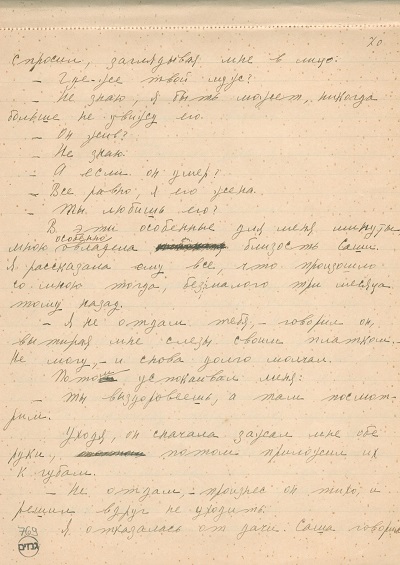 70
спросил, заглядывая мне в лицо:
– Где-же твой муж?
– Не знаю, я быть может, никогда
больше не увижу его.
– Он жив?
– Не знаю.
– А если он умер?
– Все равно, я его жена.
– Ты любишь его?
В эти особенные для меня минуты
мною особенно овладела близость Саши.
Я рассказала ему все, что произошло
со мною тогда, безмалого три месяца
тому назад.
– Я не отдам тебя, – говорил он,
вытирая мне слезы своим платком.
Не могу, – и снова долго молчал.
Потом успокаивал меня:
– Ты выздоровеешь, а там посмот-
рим.
Уходя, он сначала зажал мне обе
руки, потом приложил их
к губам.
– Не отдам, – произнес он тихо, и
решил вдруг не уходить.
Я отказалась от дачи. Саша говорил
769
גנזים